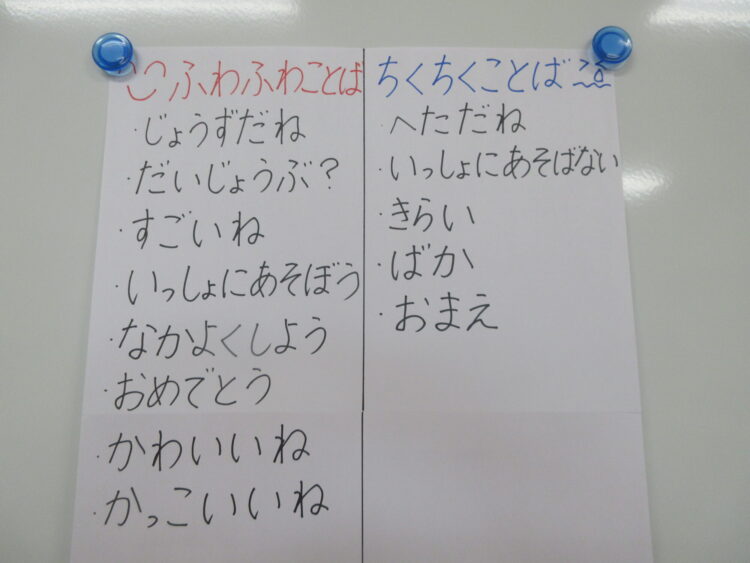 ふわふわことば
・じょうずだね
・だいじょうぶ？
・すごいね
・いっしょにあそぼう
・なかよくしよう
・おめでとう
・かわいいね
・かっこいいね
ちくちくことば
・へただね
・いっしょにあそばない
・きらい
・ばか
・おまえ